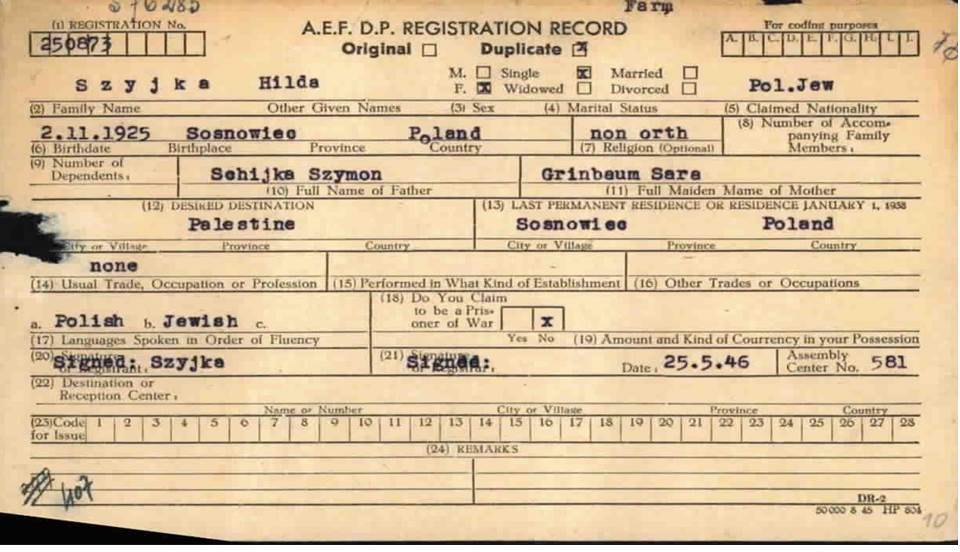 Farm
(1) REGISTRATION No. A.E.F. D.P. REGISTRATION RECORD For coding purposes
250873 Original Duplicate x A. B. C. D. E. F. G. H. I. J.
Szyjka Hilda M. Single x Married Pol.Jew
F. x Widowed Divorced
(2) Family Name Other Given Names (3) Sex (4) Marital Status (5) Claimed Nationality
2.11.1925 Sosnowiec Poland non orth (8) Number of Accom-
panying Family
(6) Birthdate Birthplace Province Country (7) Religion (Optional) Members:
(9) Number of
Dependents: Schijka Szymon Grinbaum Sara
(10) Full Name of Father (11) Full Maiden Mame of Mother
(12) DESIRED DESTINATION (13) LAST PERMANENT RESIDENCE OR RESIDENCE JANUARY 1, 1938
Palestine Sosnowiec Poland
City or Village Province Country City or Village Province Country
none
(14) Usual Trade, Occupation or Profession (15) Performed in What Kind of Establishment (16) Other Trades or Occupations
(18) Do You Claim
to be a Pris-
a. Polish b. Jewish c. oner of War x
(17) Languages Spoken in Order of Fluency Yes No (19) Amount and Kind of Courrency in your Possession
(20) Signature (21) Signature
Signed: Szyjka Signed: Date: 25.5.46 Assembly
of Registrant: of Registrar: Center No. 581
(22) Destination or
Reception Center:
Name or Number City or Village Province Country
(23) Code 1 2 3 4 5 6 7 8 9 10 11 12 13 14 15 16 17 18 19 20 21 22 23 24 25 26 27 28
for Issue
(24) REMARKS
407
DR-2
50000 8 45 HP 804
10